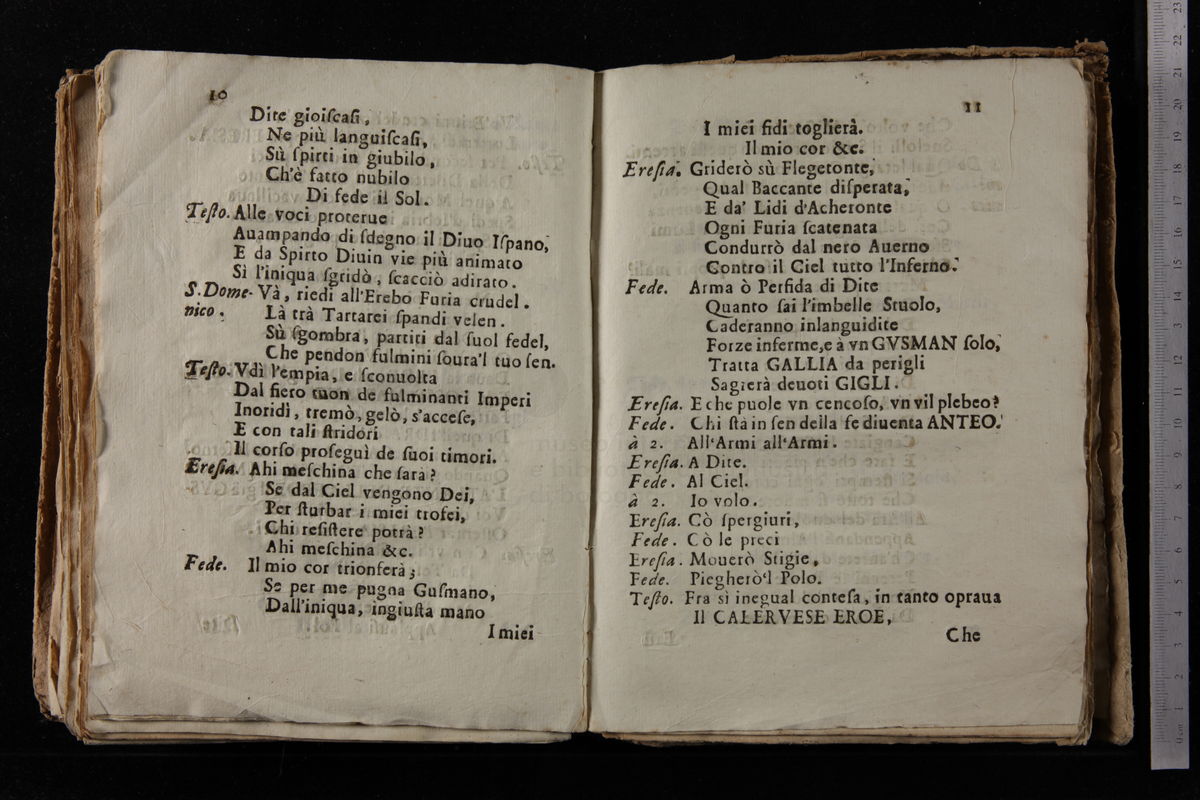 10
Dite gioiſcaſi,
Ne più languiſcaſi,
Sù ſpirti in giubilo,
Ch'è fatto nubilo
Di fede il Sol.
Teſto. Alle voci proterue
Auampando di ſdegno il Diuo Iſpano,
E da Spirto Diuin vie più animato
Sì l'iniqua ſgridò, ſcacciò adirato.
S. Dome- Và, riedi all'Erebo Furia crudel.
nico. Là trà Tartarei ſpandi velen.
Sù ſgombra, partiti dal ſuol fedel,
Che pendon fulmini ſoura'l tuo ſen.
Teſto. Vdì l'empia, e ſconuolta
Dal fiero tuon de fulminanti Imperi
Inoridì, tremò, gelò, s'acceſe,
E con tali ſtridori
Il corſo proſeguì de ſuoi timori.
Ereſia. Ahi meſchina che ſarà?
Se dal Ciel vengono Dei,
Per ſturbar i miei trofei,
Chi reſiſtere potrà?
Ahi meſchina &c.
Fede. Il mio cor trionferà;
Se per me pugna Guſmano,
Dall'iniqua, ingiuſta mano
I miei
11
I miei fidi toglierà.
Il mio cor &c.
Ereſia. Griderò sù Flegetonte,
Qual Baccante diſperata,
E da' Lidi d'Acheronte
Ogni Furia ſcatenata
Condurrò dal nero Auerno
Contro il Ciel tutto l'Inferno.
Fede. Arma ò Perfida di Dite
Quanto ſai l'imbelle Stuolo,
Caderanno inlanguidite
Forze inferme, e à vn GVSMAN ſolo,
Tratta GALLIA da perigli
Sagrerà deuoti GIGLI.
Ereſia. E che puole vn cencoſo, vn vil plebeo?
Fede. Chi ſtà in ſen della fe diuenta ANTEO.
à 2. All'Armi all'Armi.
Ereſia. A Dite.
Fede. Al Ciel.
à 2. Io volo.
Ereſia. Cò ſpergiuri,
Fede. Cò le preci
Ereſia. Mouerò Stigie,
Fede. Piegherò'l Polo.
Teſto. Fra sì inegual conteſa, in tanto opraua
Il CALERVESE EROE,
Che